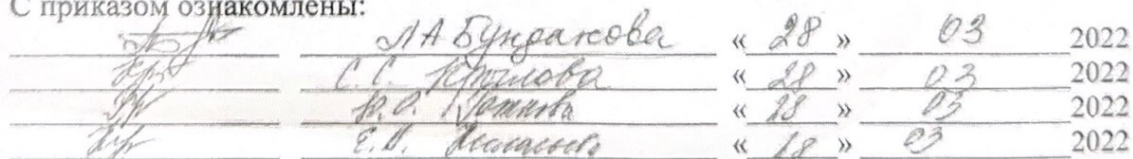 С приказом ознакомлены:
Л А Бундакова « 28 » 03 2022
С. С. Крылова « 28 » 03 2022
Ю. О. « 28 » 03 2022
Е. « 28 » 03 2022